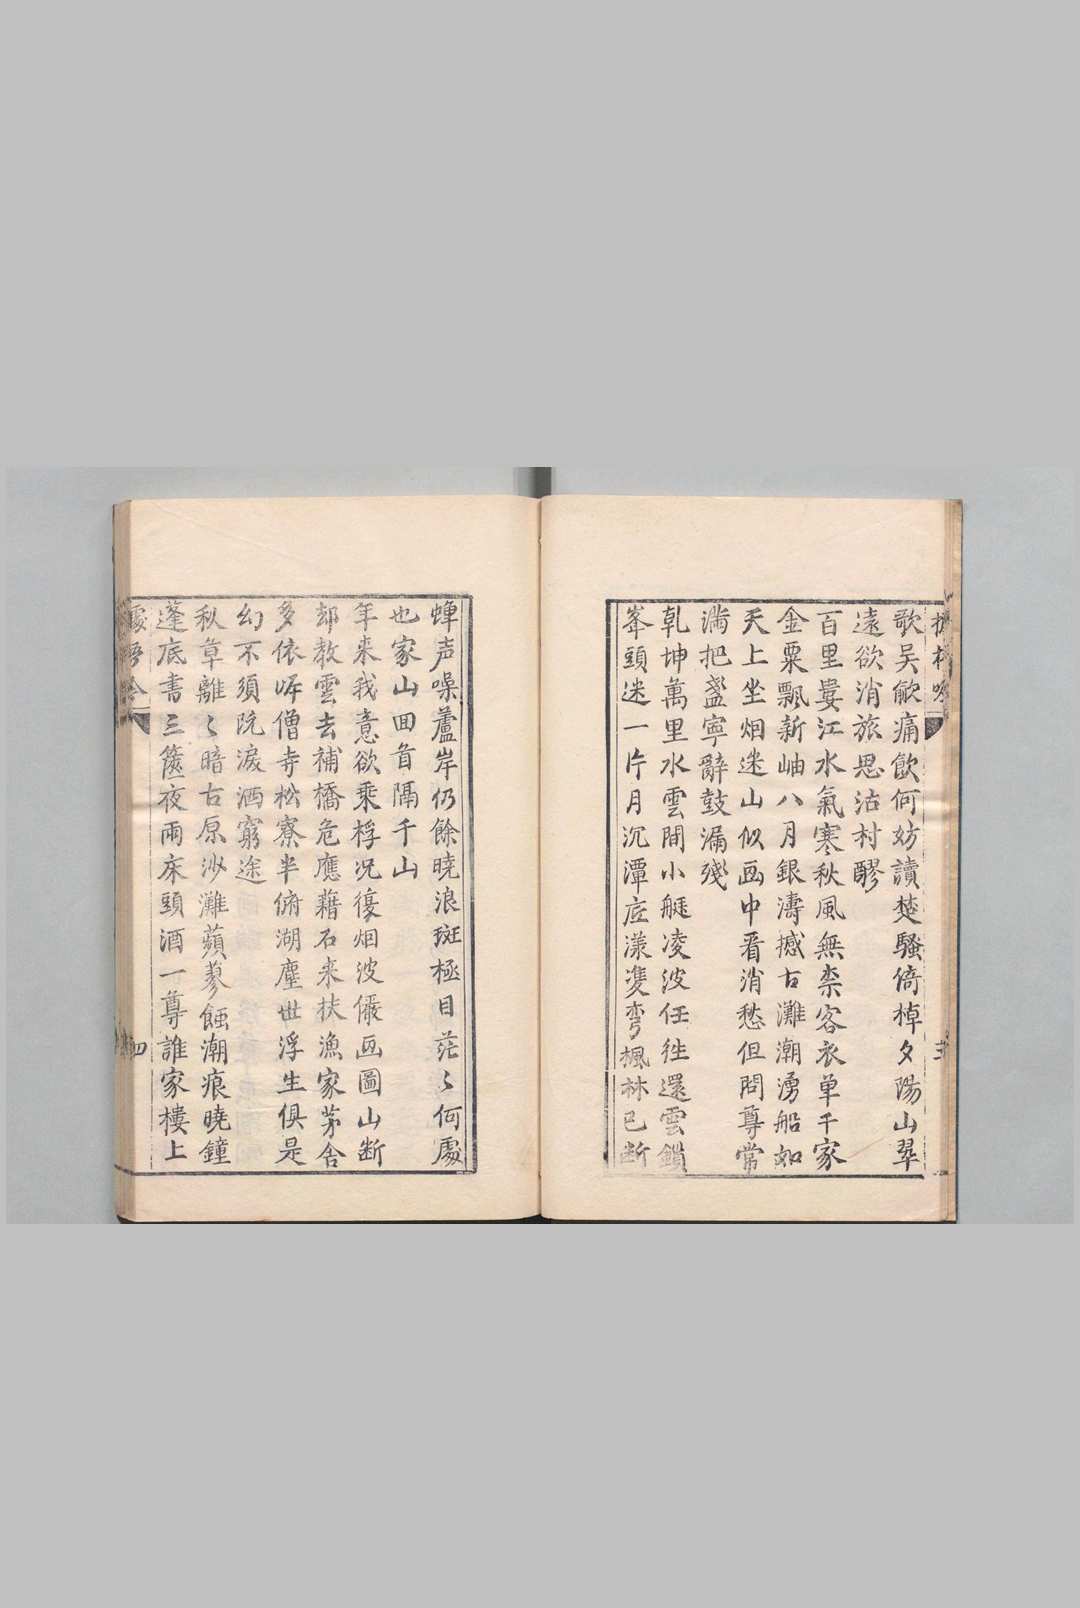 歌吴歈痛飲何妨讀楚騷倚棹夕陽山翠
遠欲消旅思沽村醪
百里婁江水氣寒秋風無柰客衣單千家
金粟飄新岫八月銀濤撼古灘潮湧船如
天上坐烟迷山似画中看消愁但問尊常
滿把盞寧辭鼓漏殘
乾坤萬里水雲間小艇凌波任徃還雲鎖
峯頭迷一片月沉潭底漾雙彎楓林已断
蟬声噪蘆岸仍餘曉浪斑極目茫〻何處
也家山回首隔千山
年来我意欲乗桴况復烟波儼画圖山断
却教雲去補橋危應藉石来扶漁家茅舍
多依岸僧寺松寮半俯湖塵世浮生俱是
幻不須阮淚洒窮途
秋草離〻暗古原沙灘蘋蓼蝕潮痕曉鐘
蓬底書三篋夜雨床頭酒一尊誰家樓上
四